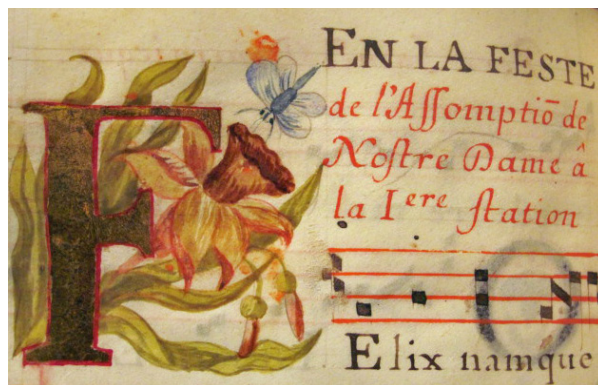 EN LA FESTE
de l'Aſſomptiō de
Noſtre Dame â
la Iere ſtation
F
Elix namque